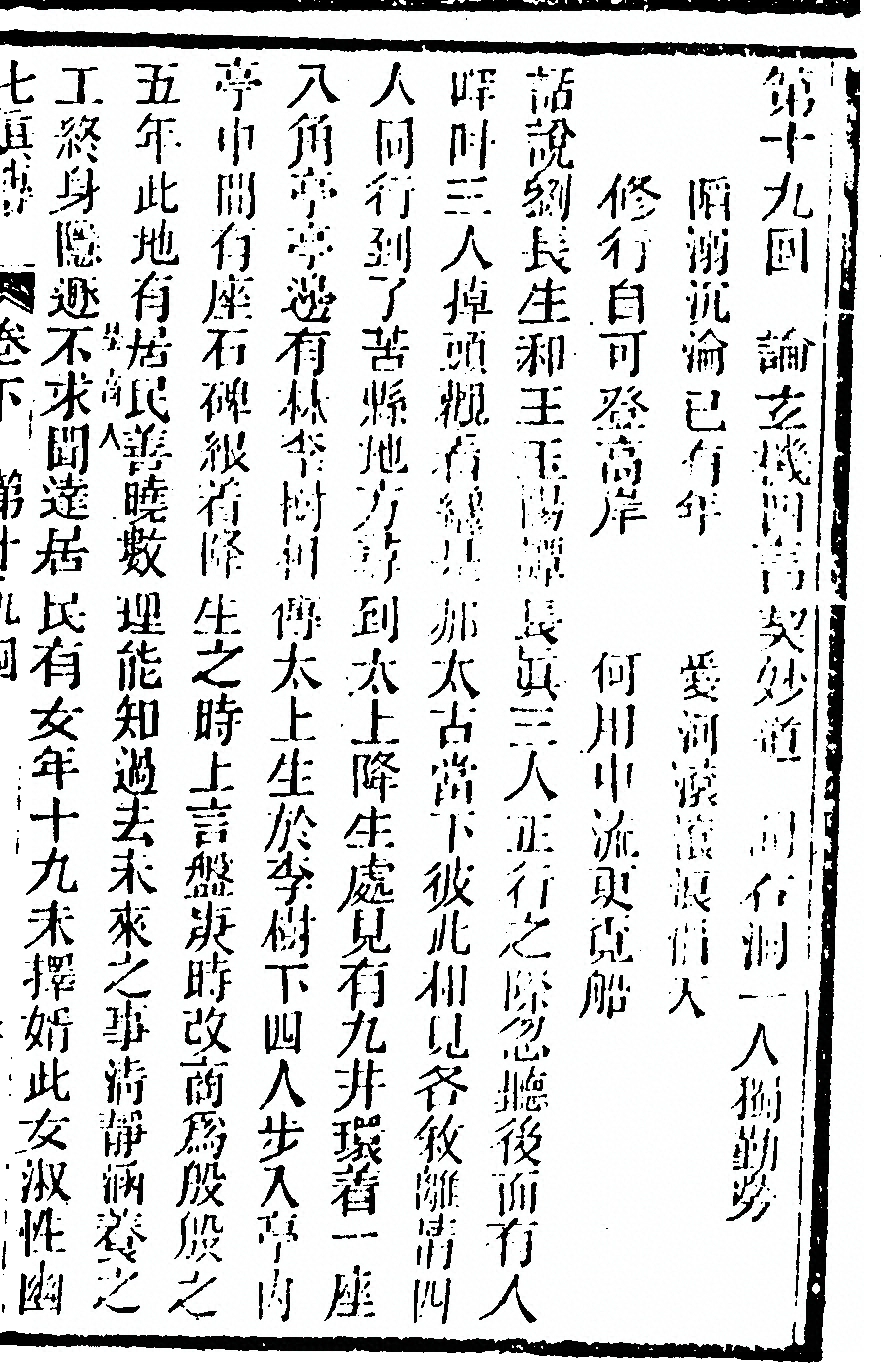 第十九回　論玄機四言契妙道　開石洞一人獨勤勞
陷溺沉淪已有年　愛河滾滾浪滔天
修行自可登高岸　何用中流更覓船
話說劉長生和王玉陽譚長真三人正行之際忽聽後面有人
呼叫三人掉頭觀看纔是郝太古當下彼此相見各敘離情四
人同行到了苦縣地方尋到太上降生處見有九井環着一座
八角亭亭邊有株李樹相傳太上生於李樹下四人步入亭內
亭中間有座石碑銀着降生之時上言盤庚時改商為殷殷之
五年此地有居民善曉數理能知過去未來之事清靜涵養之
工終身隱遯不求聞達居民有女年十九未擇婿此女淑性幽
七真傳　卷下　第十九回